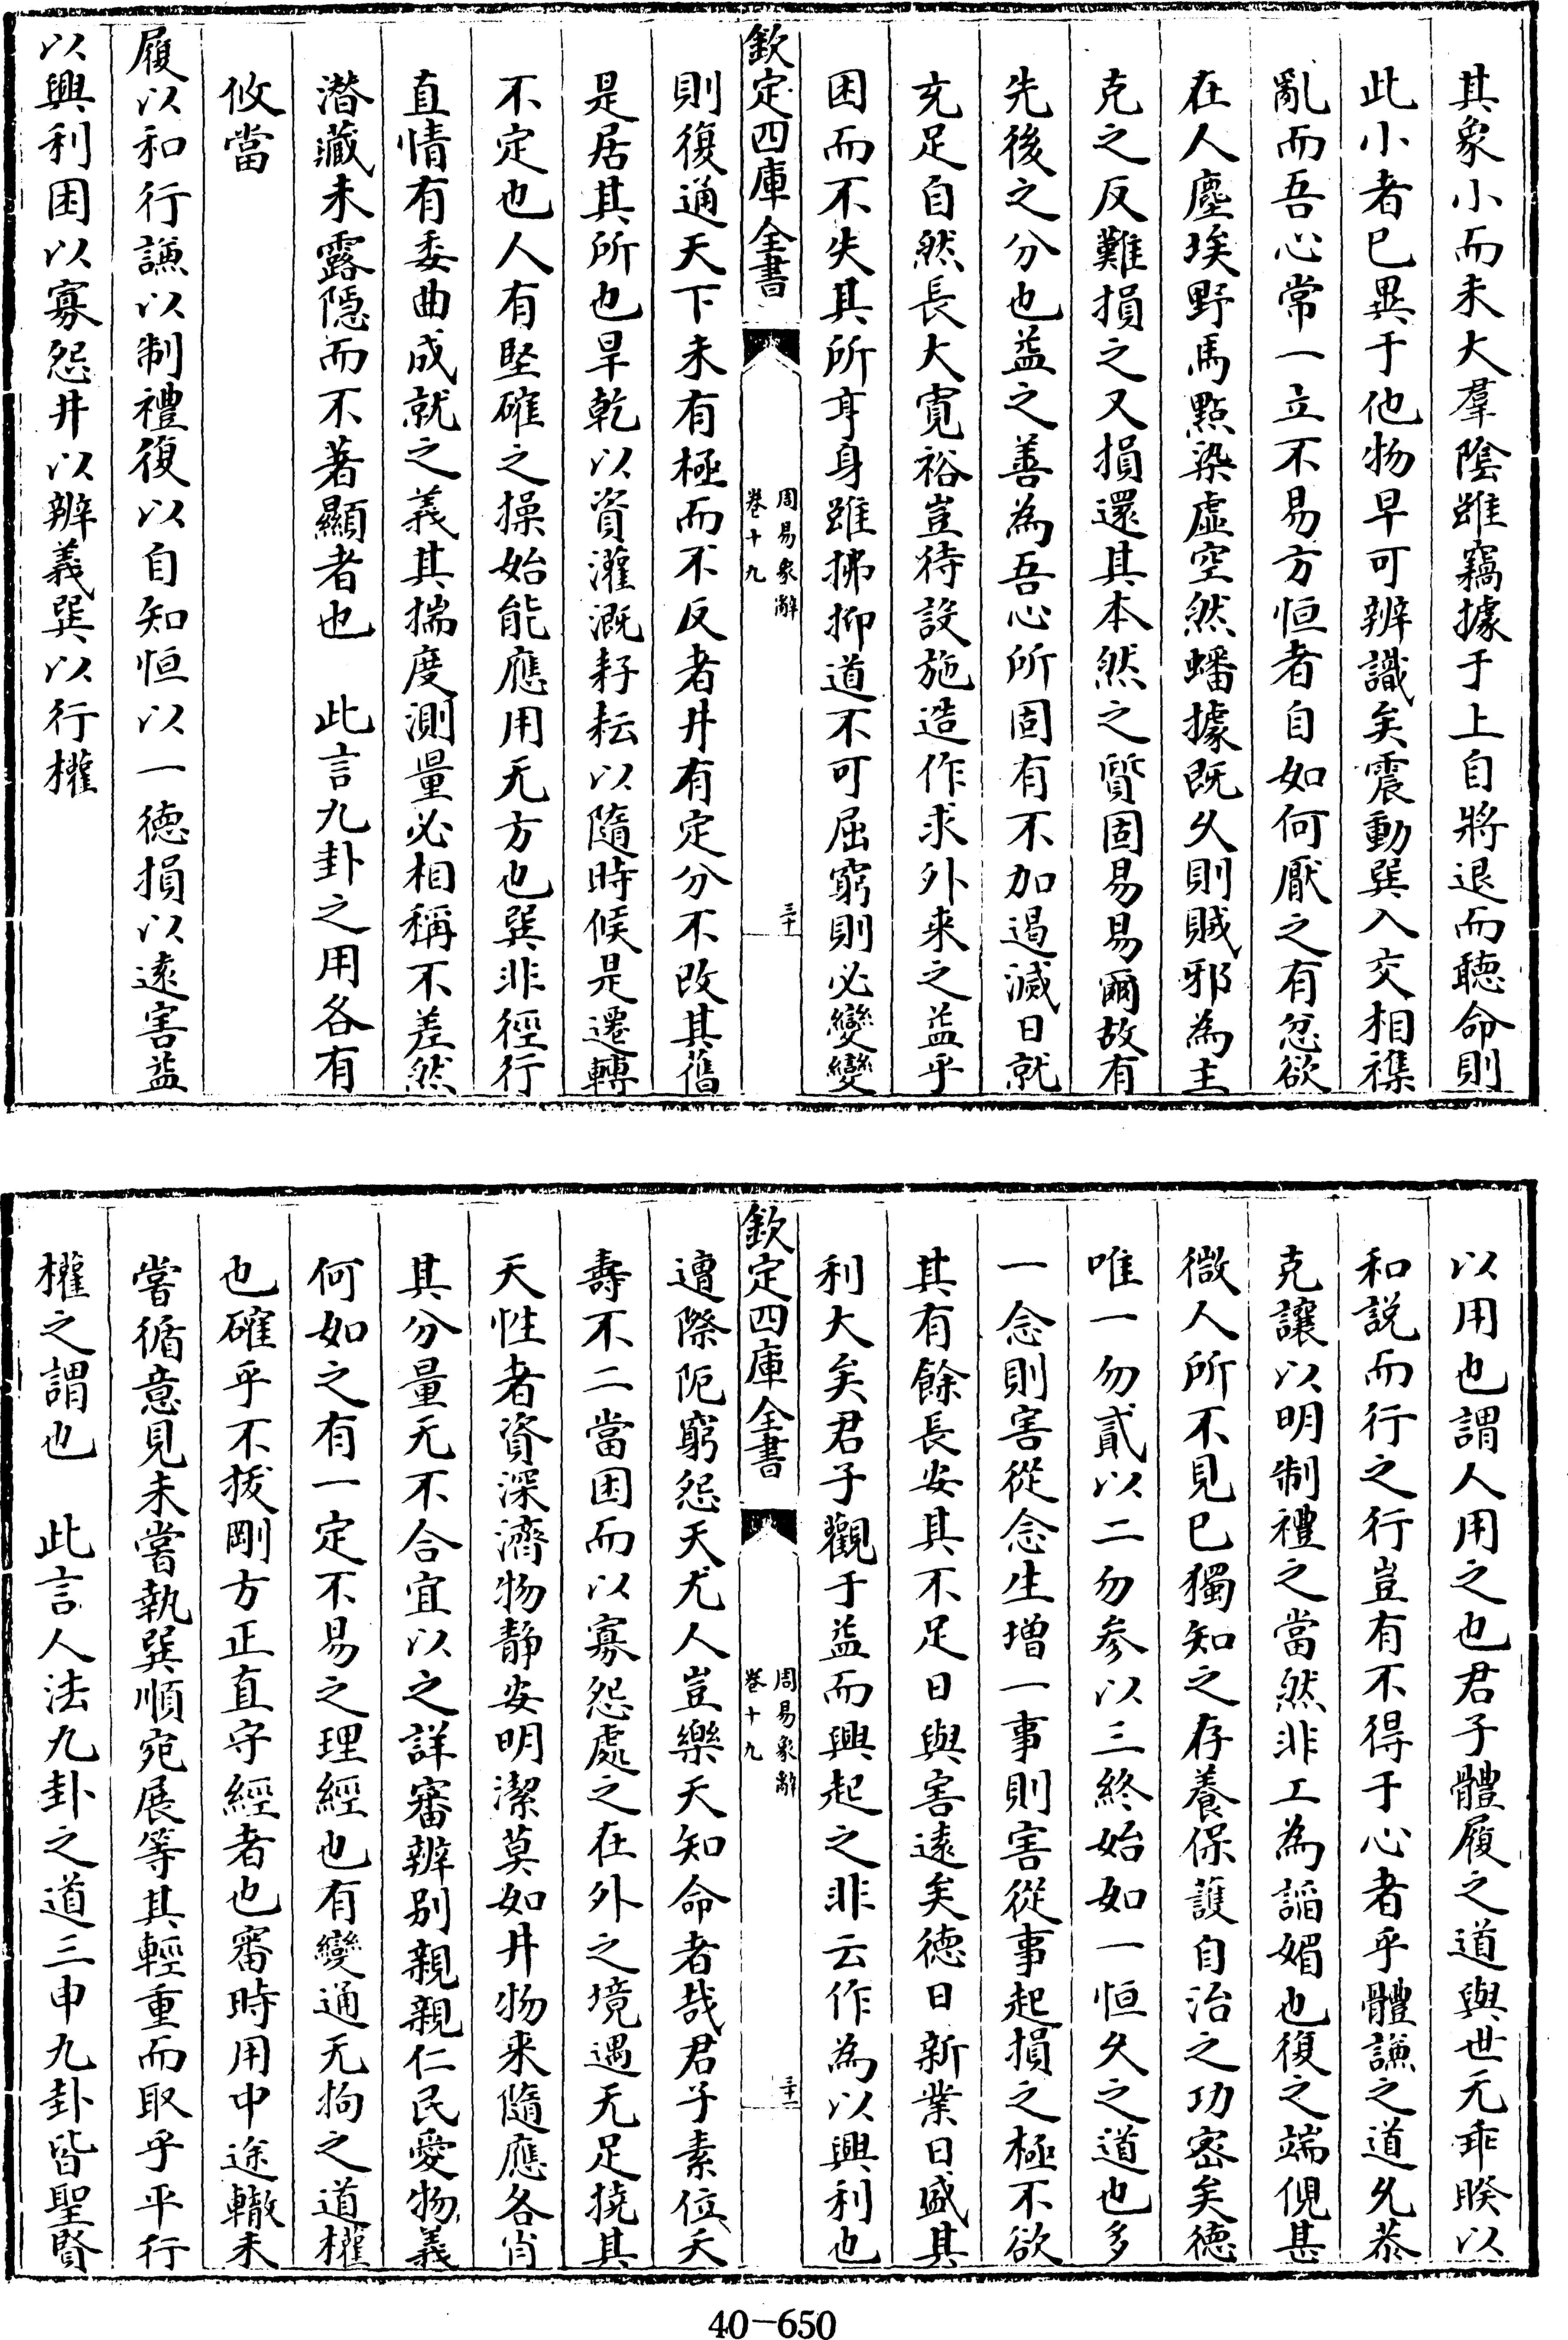 其象小而未大羣陰雖竊據于上自將退而聽命則
此小者已異于他物早可辨識矣震動巽入交相襍
亂而吾心常一立不易方恒者自如何厭之有忿欲
在人塵埃野馬點染虛空然蟠據既久則賊邪為主
克之反難損之又損還其本然之質固易易爾故有
先後之分也益之善為吾心所固有不加遏滅日就
充足自然長大寛裕豈待設施造作求外来之益乎
困而不失其所亨身雖拂抑道不可屈窮則必變變
欽定四庫全書
周易象辭
卷十九
三十
則復通天下未有極而不反者井有定分不改其舊
是居其所也旱乾以資灌溉耔耘以隨時候是遷轉
不定也人有堅確之操始能應用无方也巽非徑行
直情有委曲成就之義其揣度測量必相稱不差然
潜藏未露隱而不著顯者也　此言九卦之用各有
攸當
履以和行謙以制禮復以自知恒以一德損以遠害益
以興利困以寡怨井以辨義巽以行權
以用也謂人用之也君子體履之道與世无乖睽以
和説而行之行豈有不得于心者乎體謙之道允恭
克讓以明制禮之當然非工為謟媚也復之端倪甚
微人所不見巳獨知之存養保護自治之功密矣德
唯一勿貳以二勿参以三終始如一恒久之道也多
一念則害從念生増一事則害從事起損之極不欲
其有餘長安其不足日與害遠矣德日新業日盛其
利大矣君子觀于益而興起之非云作為以興利也
欽定四庫全書
周易象辭
卷十九
三十一
遭際阨窮怨天尤人豈樂天知命者哉君子素位夭
壽不二當困而以寡怨處之在外之境遇无足撓其
天性者資深濟物静安明潔莫如井物来隨應各肖
其分量无不合宜以之詳審辨別親親仁民愛物義
何如之有一定不易之理經也有變通无拘之道權
也確乎不拔剛方正直守經者也審時用中途轍未
嘗循意見未嘗執巽順宛展等其輕重而取乎平行
權之謂也　此言人法九卦之道三申九卦皆聖賢
40-650